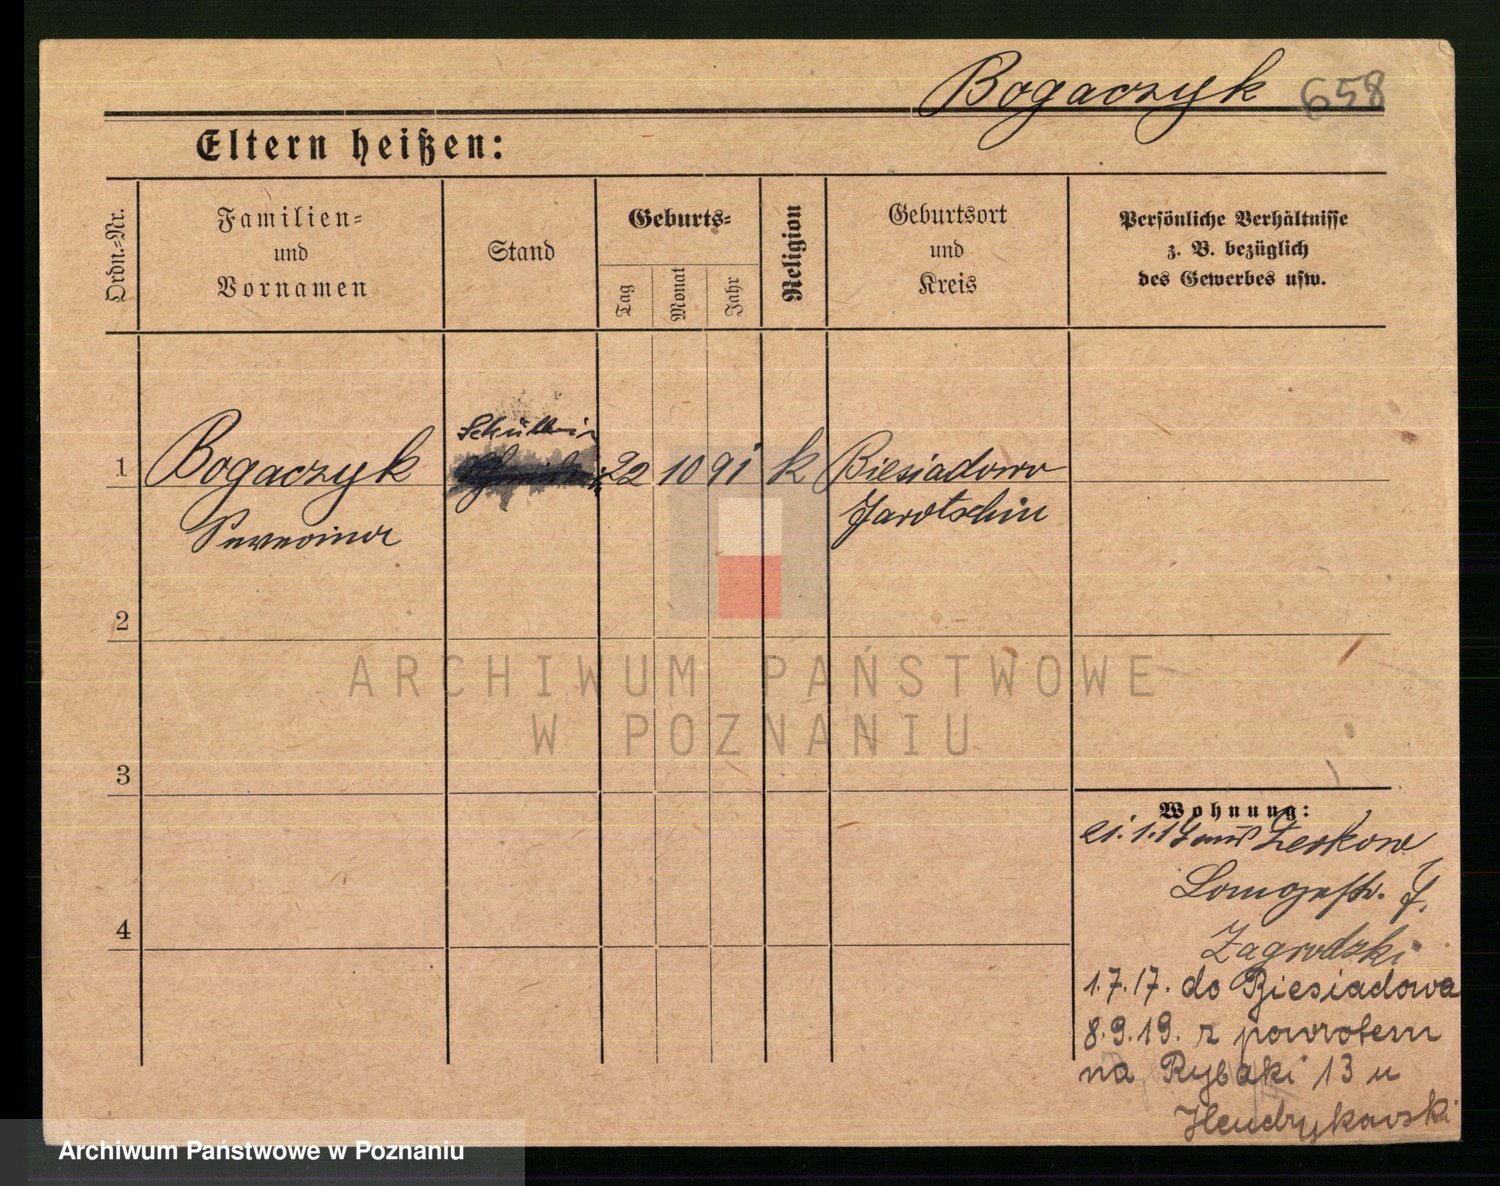 Bogaczyk 658
Eltern heißen:
Ordn.-Nr.
Familien-
und
Vornamen
Stand
Geburts-
Tag
Monat
Jahr
Religion
Geburtsort
und
Kreis
Persönliche Verhältnisse
z. B. bezüglich
des Gewerbes usw.
Schülerin
1 Bogaczyk 22 10 91 k Biesiadowo
Severina Jarotschin
2
ARCHIWUM PAŃSTWOWE
W POZNANIU
3
Wohnung:
aus Zerkow
4
Zagrodzki
1.7.17. do Biesiadowa
8.9.19. z powrotem
na Rybaki 13 u
Hendrykowski
Archiwum Państwowe w Poznaniu